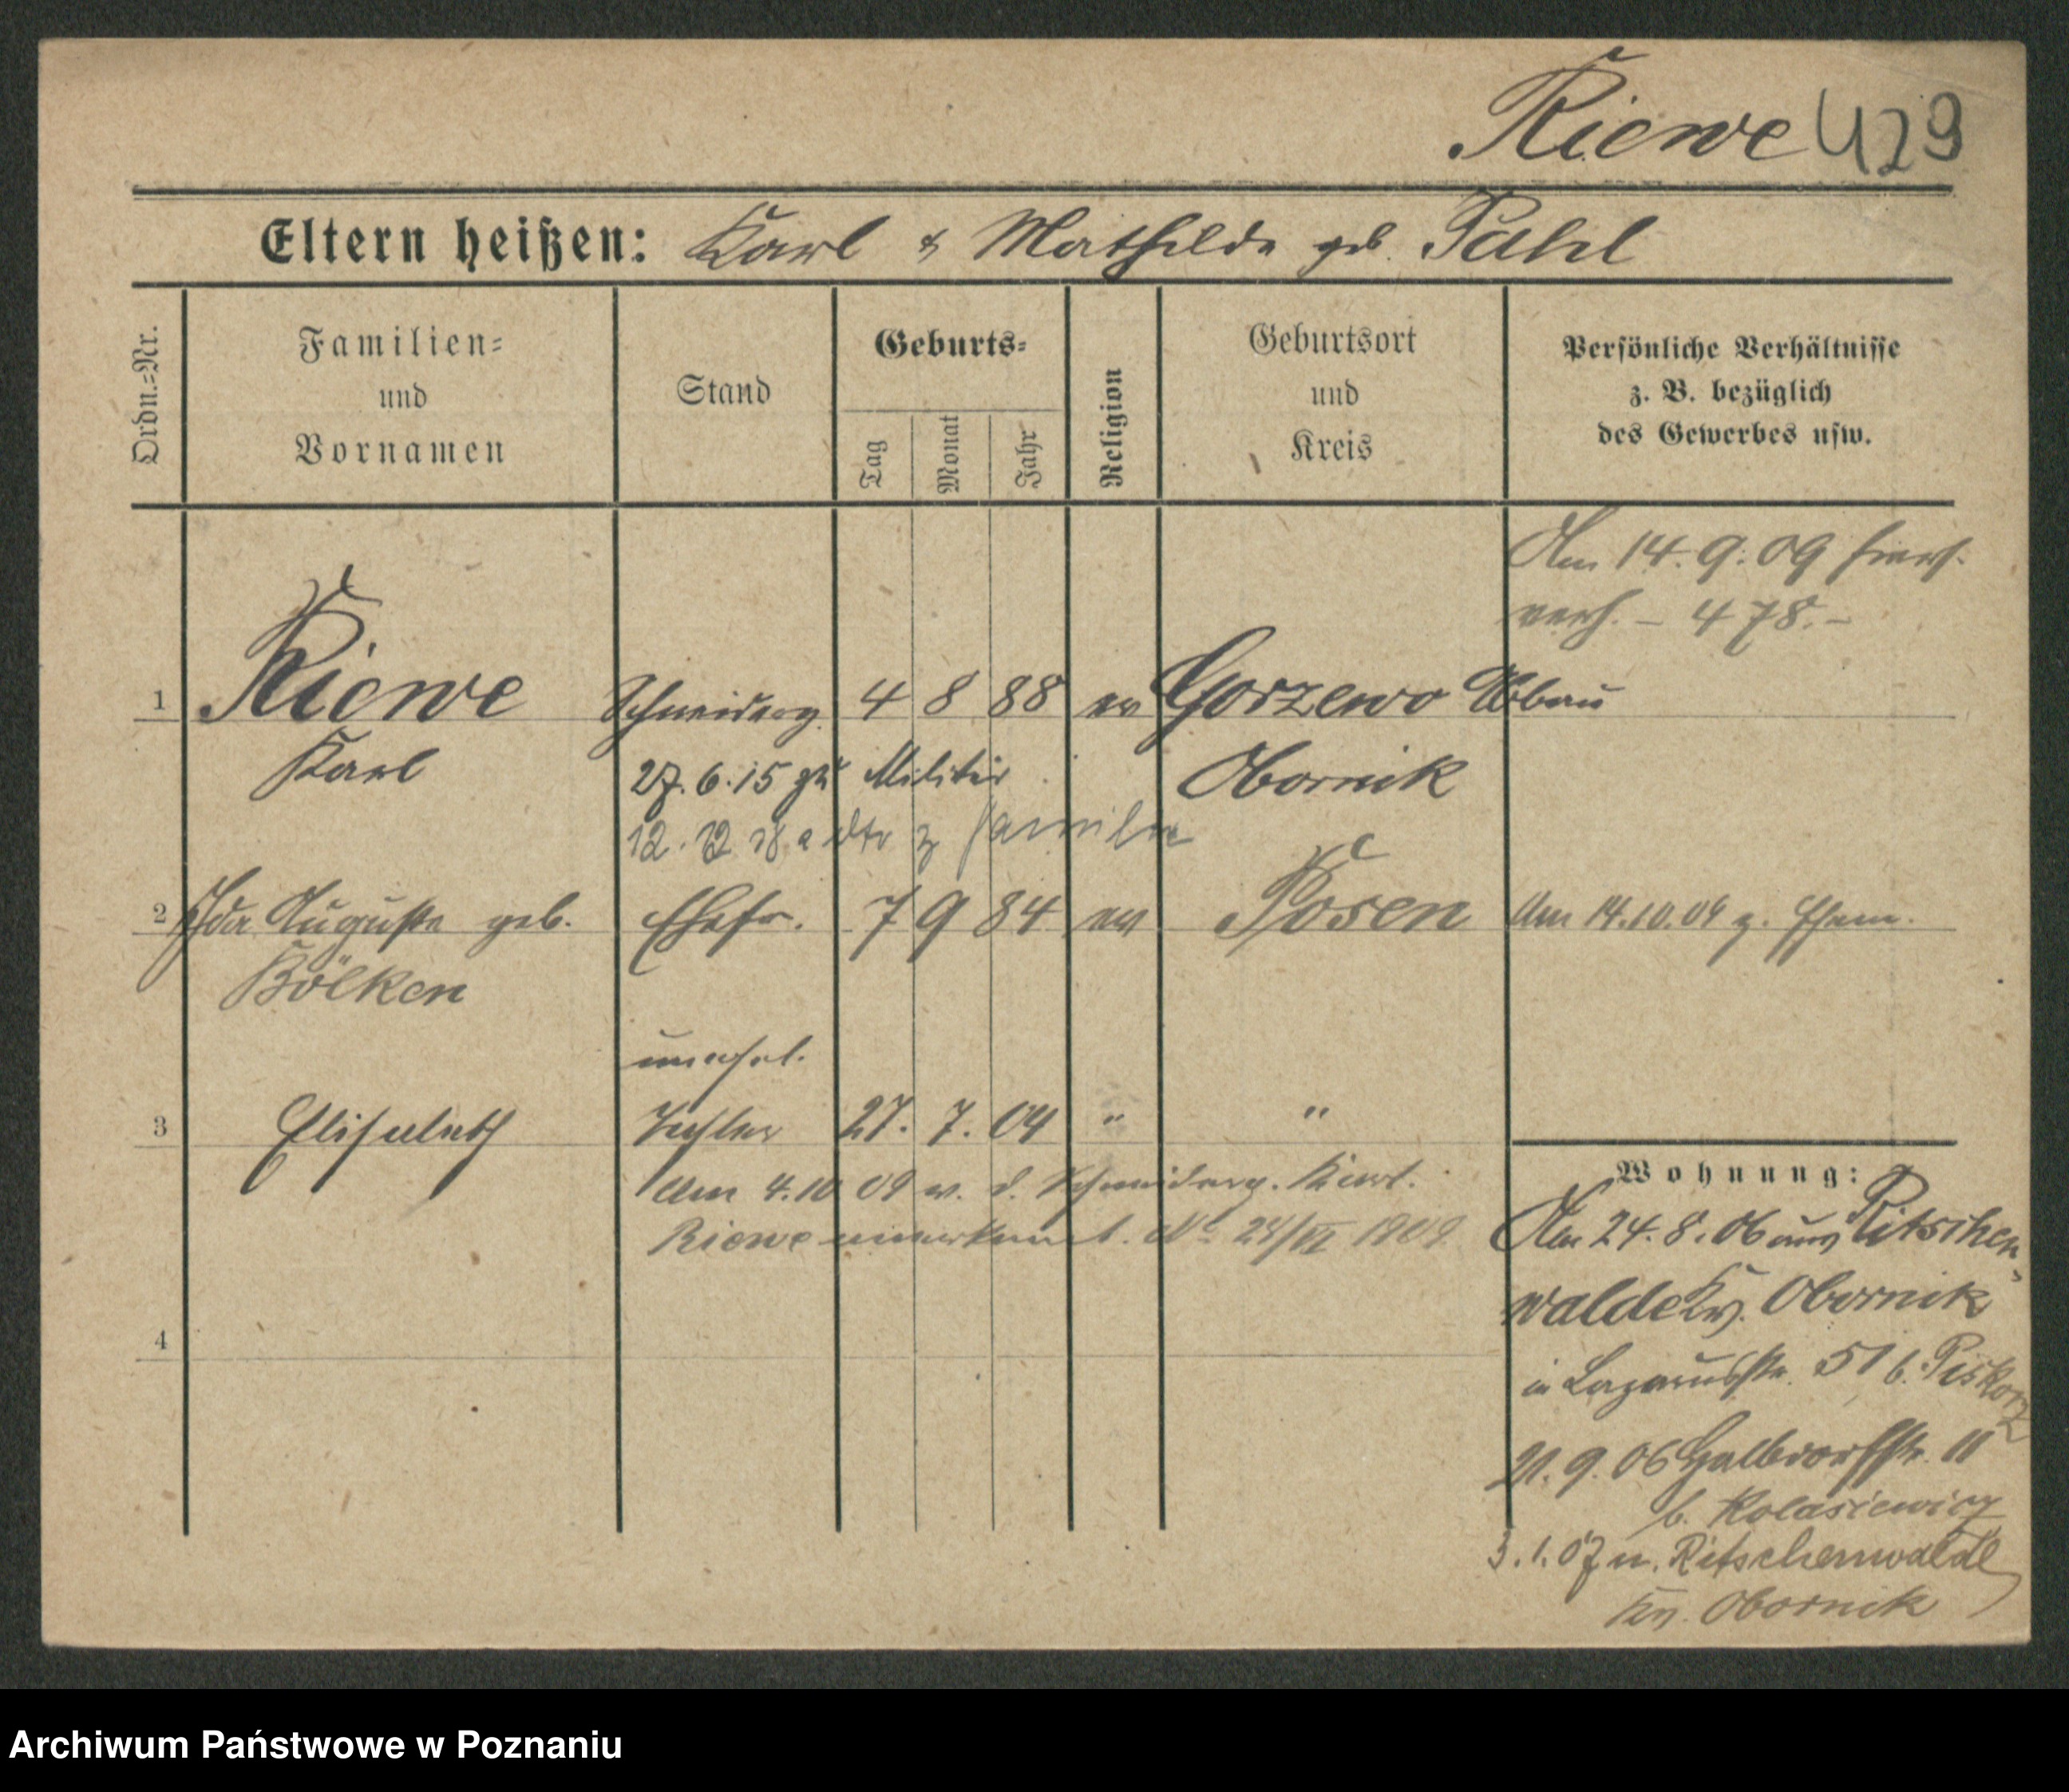 Riewe 429
Eltern heißen: Karl & Mathilde geb. Pahl
Ordn.=Nr.
Familien=
und
Vornamen
Stand
Geburts=
Tag
Monat
Jahr
Religion
Geburtsort
und
Kreis
Persönliche Verhältnisse
z. B. bezüglich
des Gewerbes usw.
Am 14. 9. 09
verh. – 478. –
1 Riewe Schneiderg. 4 8 88 ev Gorzewo Abbau
Karl 27. 6. 15 zu Militär Obornik
12. 12 18 z Familie
2 Ida Auguste geb. Ehefr. 7 9 84 ev Posen Am 14.10.09 z. Ehem.
Bölken
unehel.
3 Elisabeth Tochter 27. 7. 04 " "
Am 4.10 09 v. d. Schneiderg. Karl
Riewe anerkannt. No 24/VI 1909
4
Wohnung:
Am 24. 8. 06 aus Ritschen
walde Kr. Obornik
in Lazarusstr. 51 b. Piskorz
21. 9. 06 Halbdorfstr. 11
b. Kolasiewicz
3. 1. 07 n. Ritschenwalde
Kr. Obornik
Archiwum Państwowe w Poznaniu